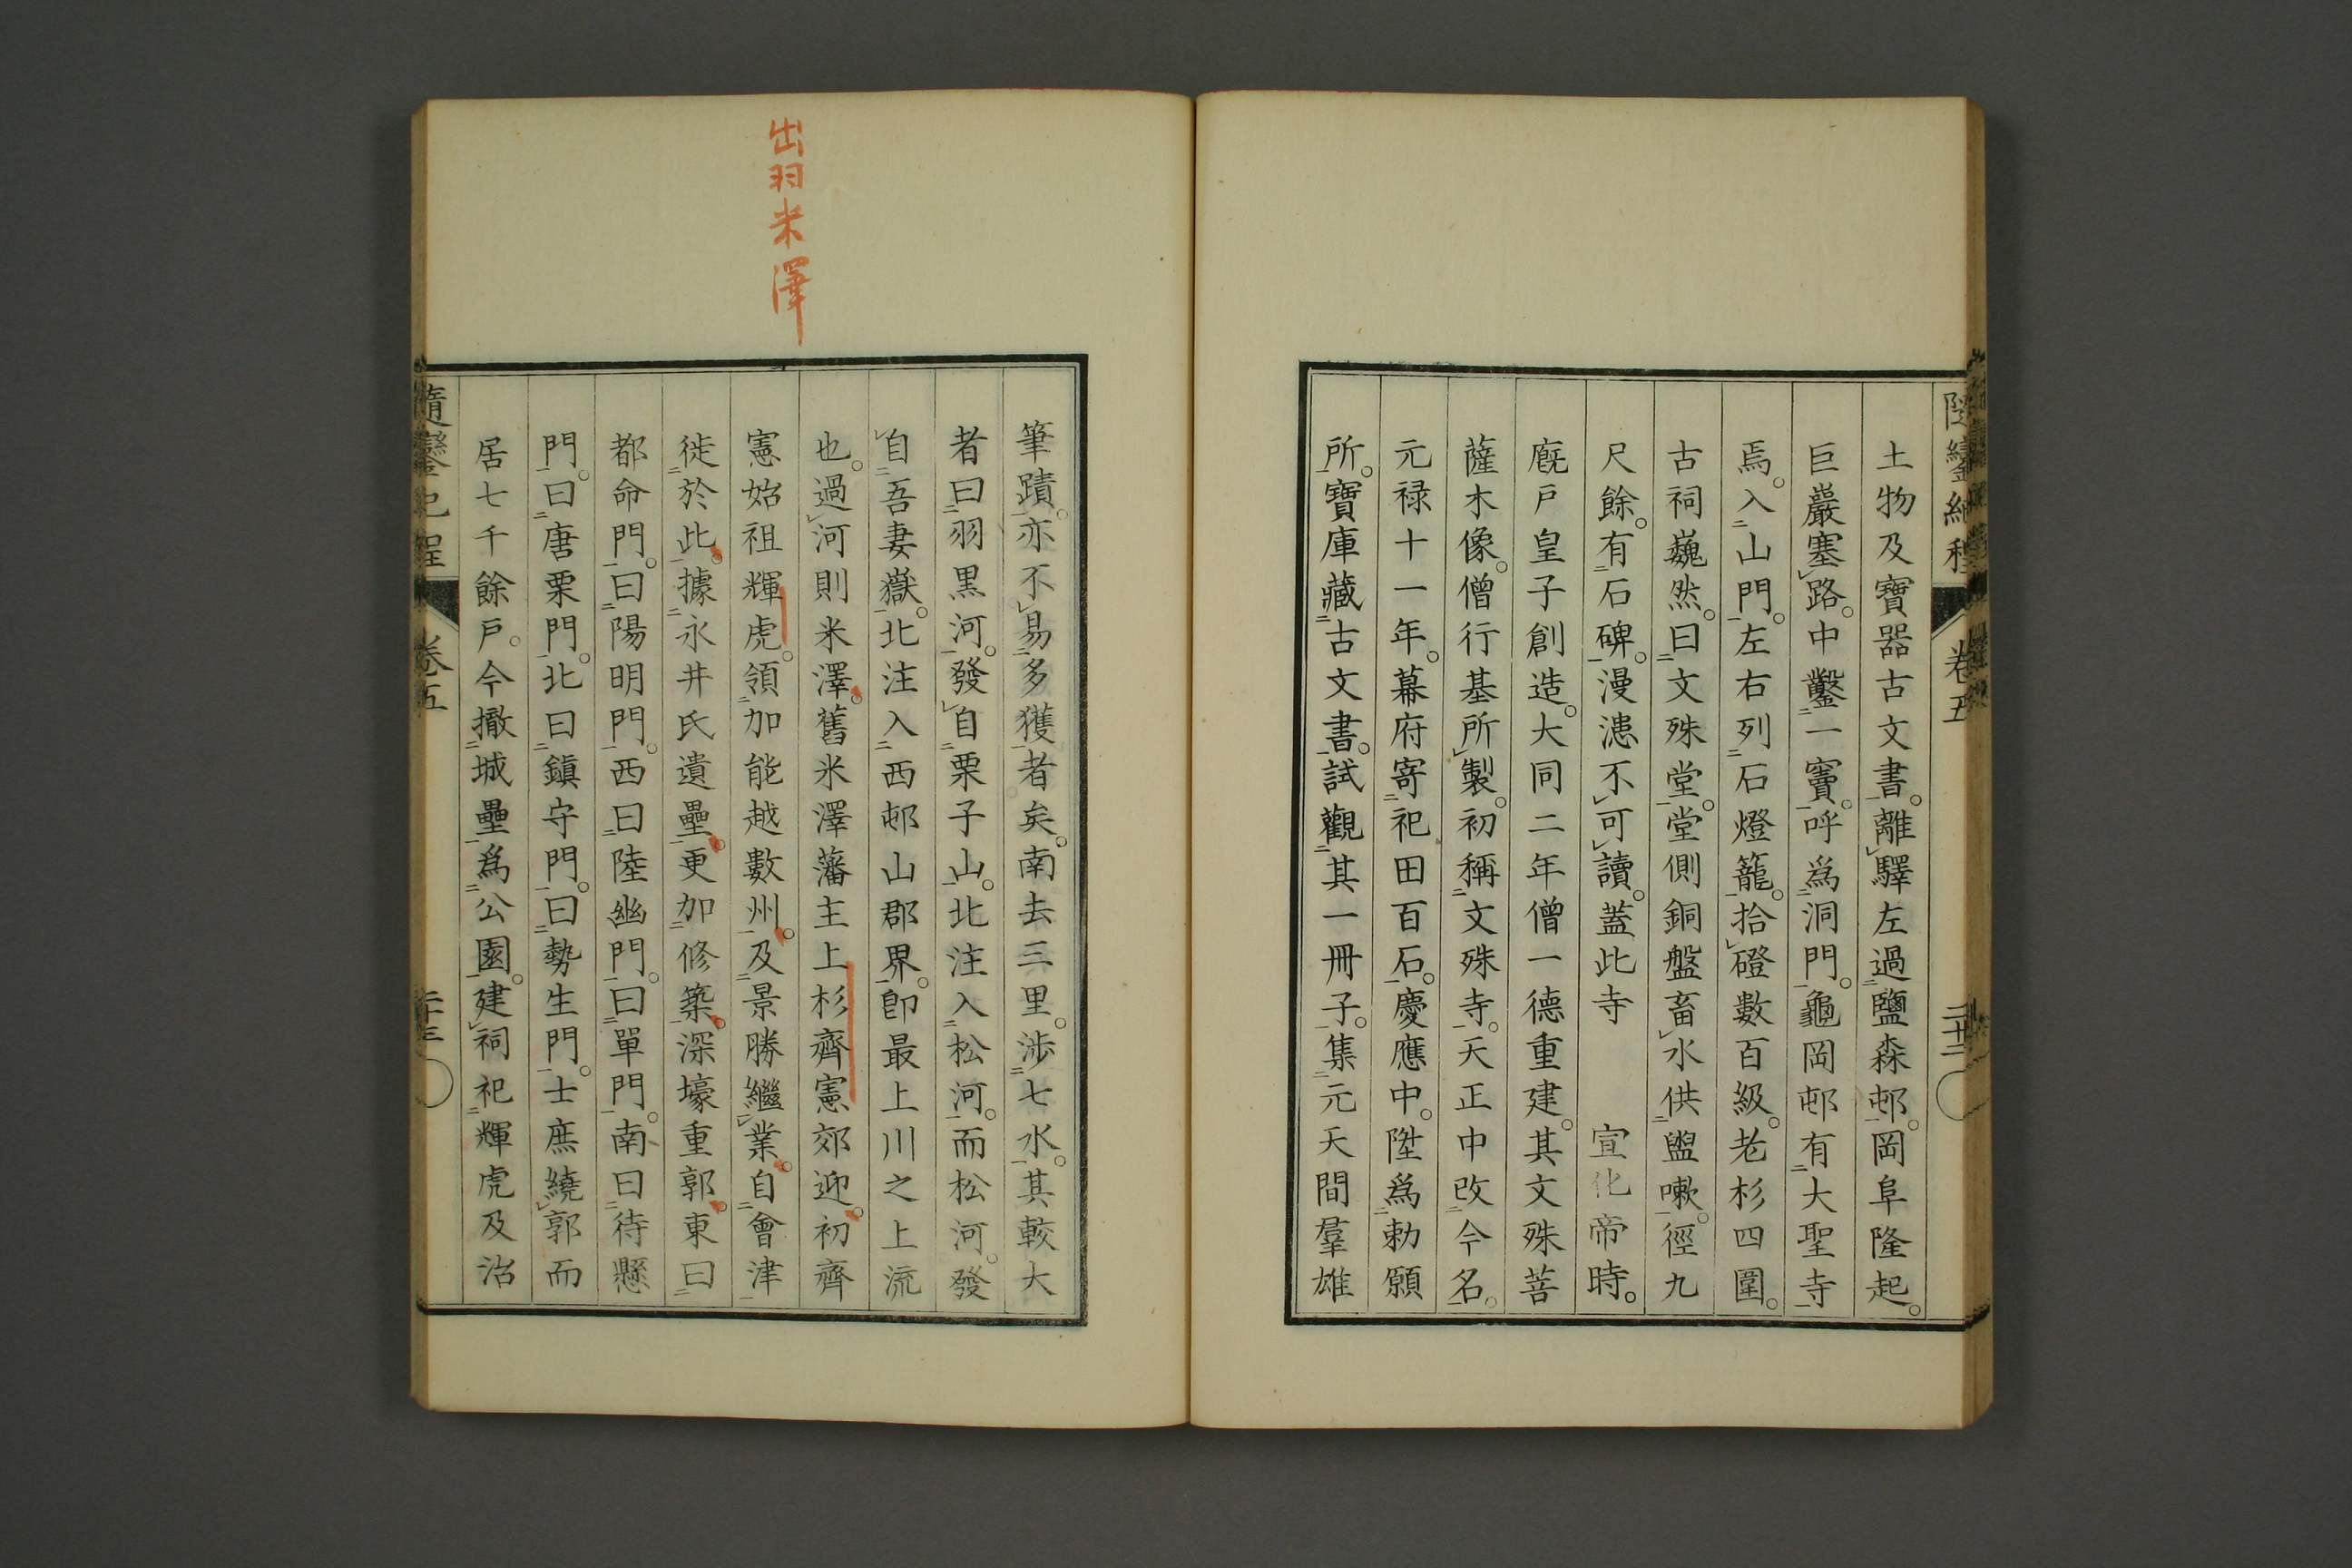 土物及寶器古文書。離驛左過鹽森邨。岡阜隆起。
巨巖塞路。中鑿一竇。呼爲洞門。龜岡邨有大聖寺
焉。入山門。左右列石燈籠。拾磴數百級。老杉四圍。
古祠巍然。曰文殊堂。堂側銅盤畜水供盥嗽。徑九
尺餘。有石碑。漫漶不可讀。蓋此寺　宣化帝時。
廐戶皇子創造。大同二年僧一德重建。其文殊菩
薩木像。僧行基所製。初稱文殊寺。天正中改今名。
元祿十一年。幕府寄祀田百石。慶應中。陞爲勅願
所。寶庫藏古文書。試觀其一冊子。集元天間羣雄
卷五
二十二
出羽米澤
筆蹟。亦不易多獲者矣。南去三里。涉七水。其較大
者曰羽黑河。發自栗子山。北注入松河。而松河。發
自吾妻嶽。北注入西邨山郡界。卽最上川之上流
也。過河則米澤。舊米澤藩主上杉齊憲郊迎。初齊
憲始祖輝虎。領加能越數州。及景勝繼業。自會津
徙於此。據永井氏遺壘。更加修築。深壕重郭。東曰
都命門。曰陽明門。西曰陸幽門。曰單門。南曰待懸
門。曰唐栗門。北曰鎭守門。曰勢生門。士庶繞郭而
居七千餘戶。今撤城壘爲公園。建祠祀輝虎及治
隨鑾紀程
卷五
二十三